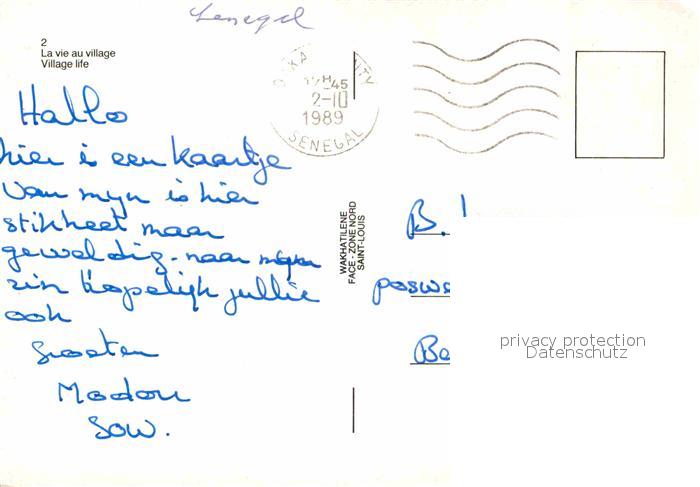 Senegal
2
La vie au village
Village life
12-10
1989
SENEGAL
Hallo
hier is een kaartje
van mijn is hier
stikheet maar
geweldig. naar mijn
zin hopelijk jullie
ook
Groeten
Modou
Sow.
WAKHATILENE
FACE - ZONE NORD
SAINT-LOUIS
B.
posws
Be
privacy protection
Datenschutz